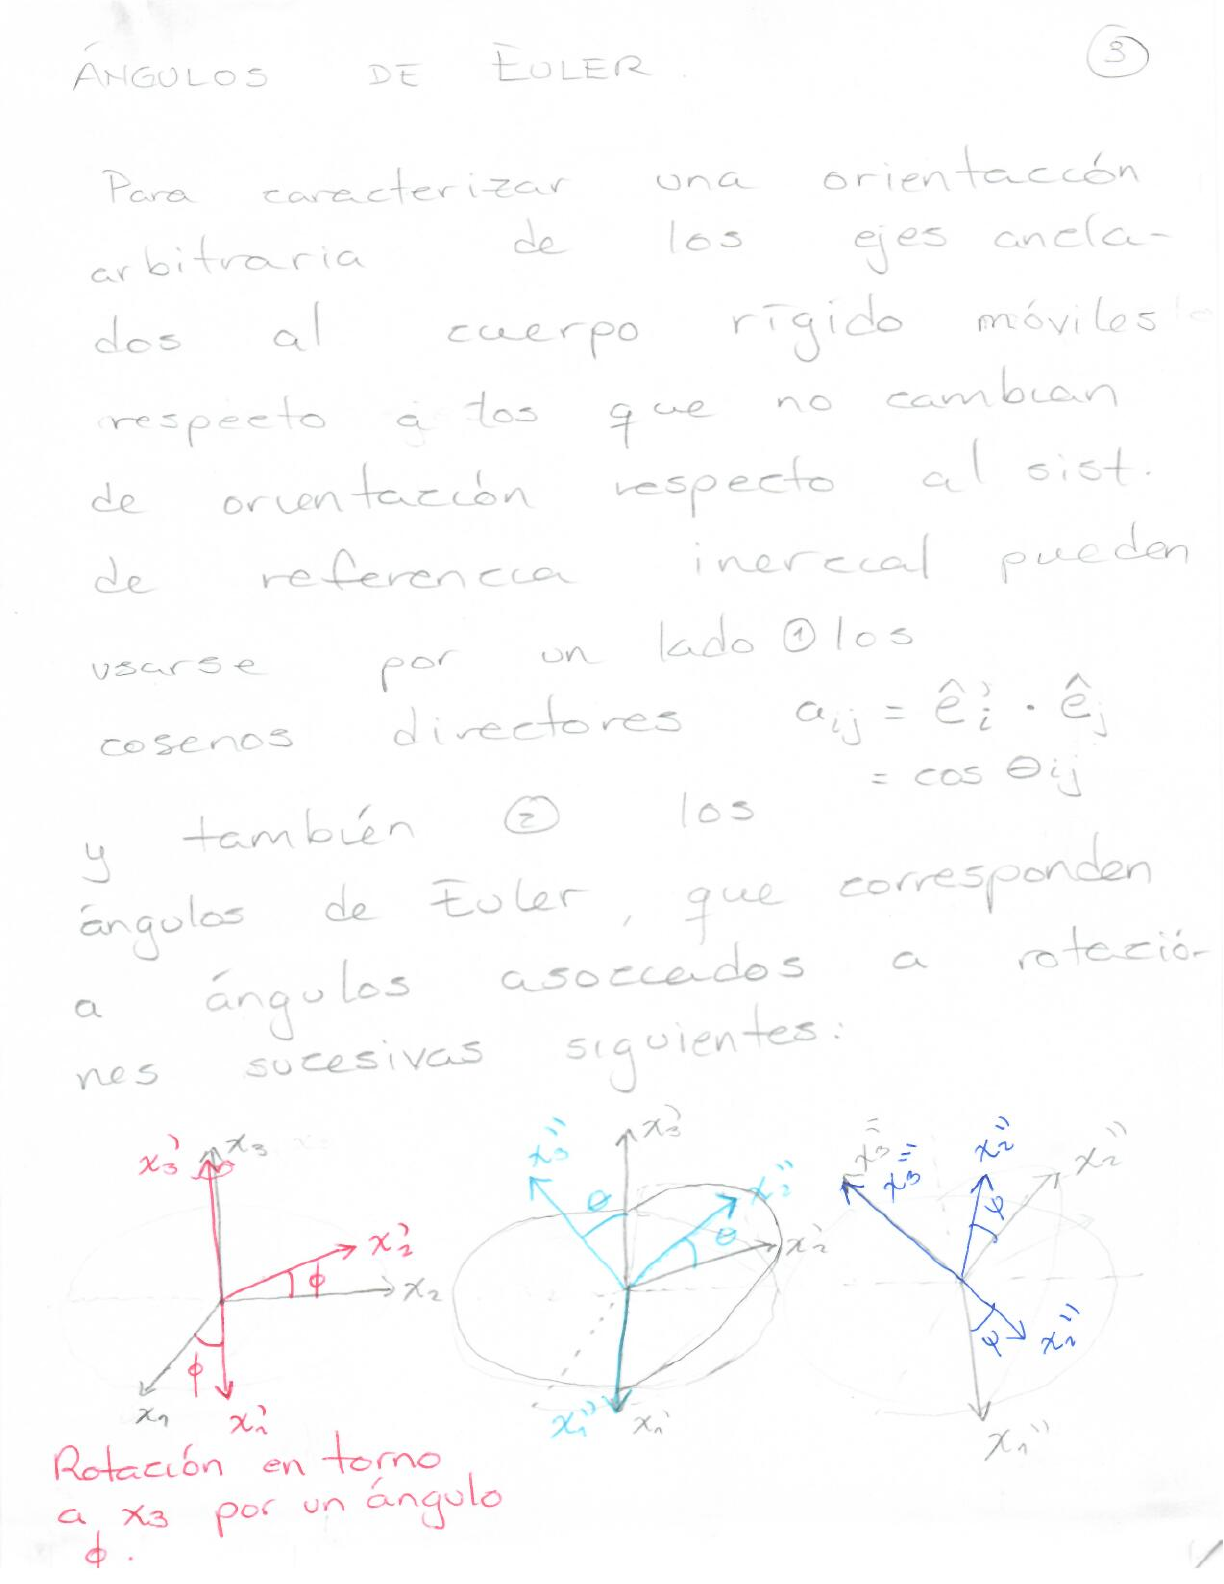 ÁNGULOS DE EULER
3
Para caracterizar una orientación
arbitraria de los ejes ancla-
dos al cuerpo rígido móviles
respecto a los que no cambian
de orientación respecto al sist.
de referencia inercial pueden
usarse por un lado ① los
cosenos directores a_ij = ê'_i · ê_j
= cos θ_ij
y también ② los
ángulos de Euler, que corresponden
a ángulos asociados a rotacio-
nes sucesivas siguientes:
x3' x3
x2'
ϕ
x2
ϕ
x1
x1'
x3'' x3'
x2''
θ
θ
x2'
x1'' x1'
x3
x3
x2''
x2''
ψ
ψ
x2''
x1''
Rotación en torno
a x3 por un ángulo
ϕ.